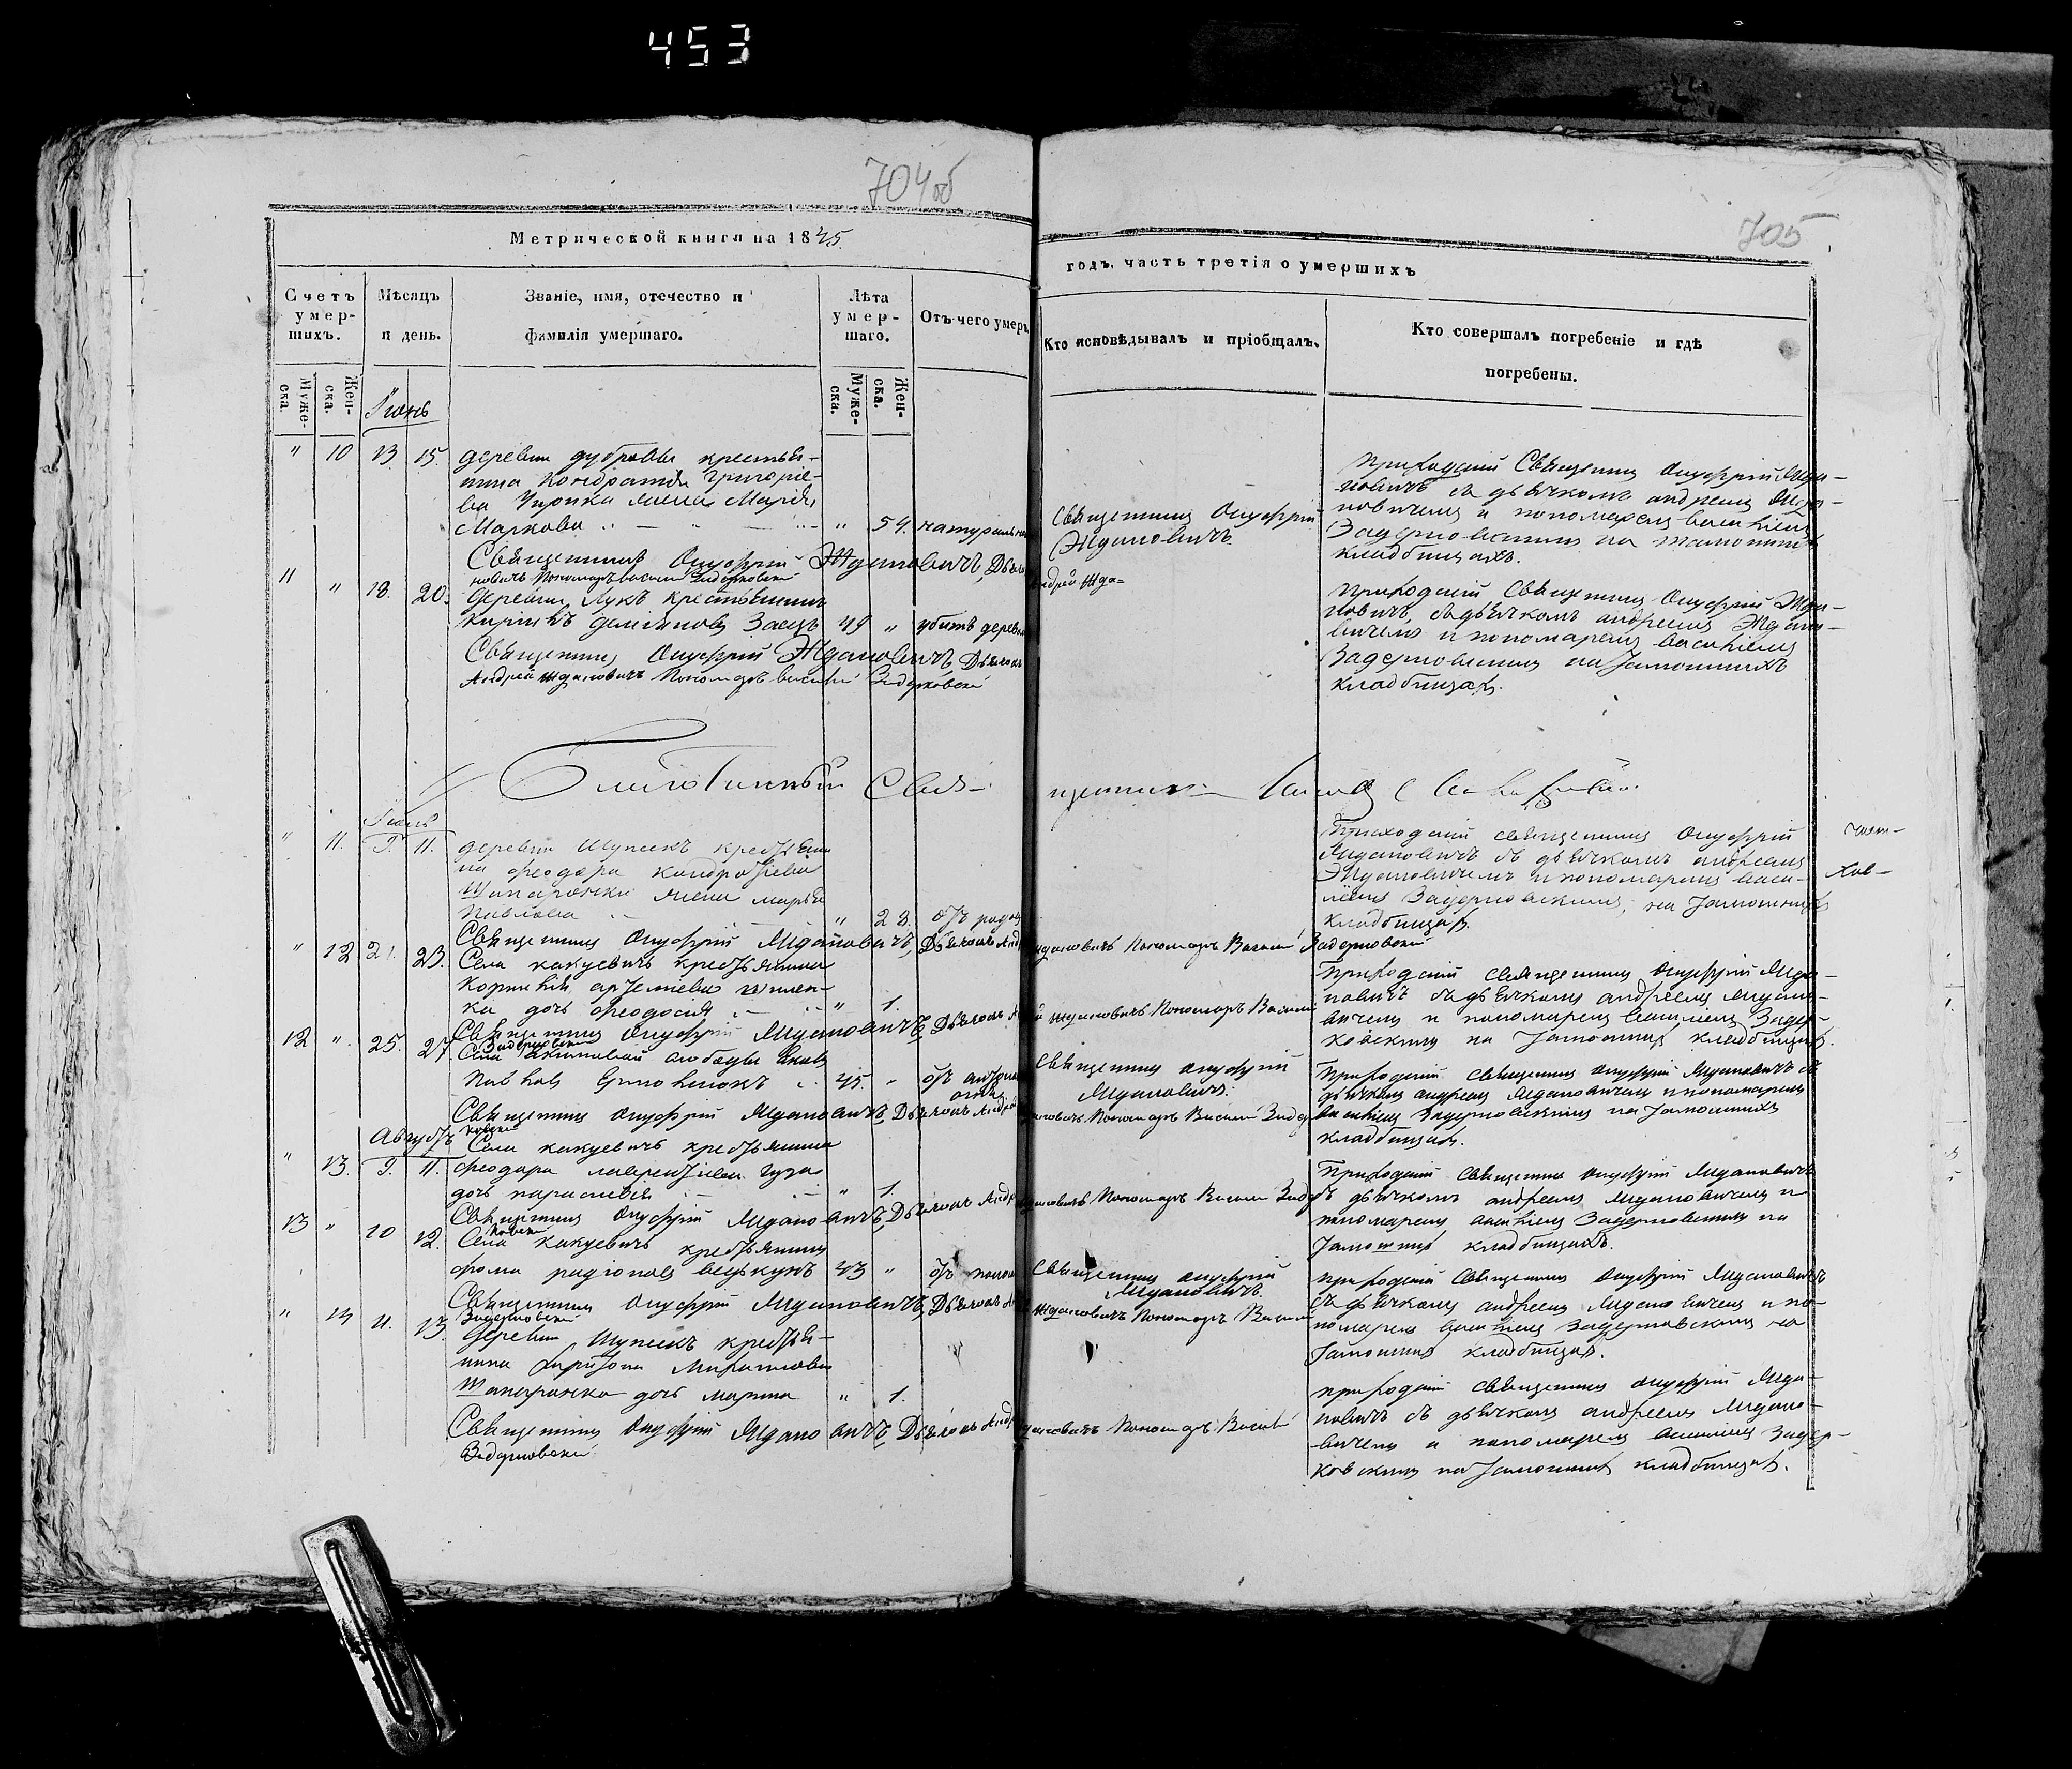 453
704об
705
Метрической книги на 1845
годъ, часть третія о умершихъ
Счетъ умер-
шихъ.
Мѣсяцъ
и день.
Званіе, имя, отечество и
фамилія умершаго.
Лѣта
умер-
шаго.
Отъ чего умеръ
Кто исповѣдывалъ и пріобщалъ.
Кто совершалъ погребеніе и гдѣ
погребены.
Муже-
ска.
Жен-
ска.
Муже-
ска.
Жен-
ска.
Іюнь
" 10 13 15. деревни дубровы крестья-
нина Кондратія Григоріе-
ва жена Марія
Маркова " 54. натурально
Священникъ Онуфрій
Ждановичъ
Приходскій Священникъ Онуфрій Жда-
новичъ съ дьячкомъ андреемъ Жда-
новичемъ и пономаремъ василіемъ
Задерновскимъ на
кладбищахъ.
Священникъ Онуфрій Ждановичъ, Дьячокъ Андрей Жда-
новичъ Пономарь василій Задерковскій
11 " 18. 20. деревни Лукъ крестьянинъ
Заецъ 49 " убитъ деревомъ
Приходскій Священникъ Онуфрій Жда-
новичъ, съ дьячкомъ андреемъ Ждано-
вичемъ и пономаремъ василіемъ
Задерновскимъ на
кладбищахъ.
Священникъ Онуфрій Ждановичъ, Дьячокъ
Андрей Ждановичъ Пономарь василій Задерковскій
Благочинный Свя- щенникъ
Іюль
" 11. 9. 11. деревни крестьяни
на феодора кондратіева
жена марья
Павлова " 28. отъ родовъ
Приходскій священникъ Онуфрій
Ждановичъ съ дьячкомъ андреемъ
Ждановичемъ и пономаремъ васи-
ліемъ Задерновскимъ, на
кладбищахъ.
Священникъ Онуфрій Ждановичъ, Дьячокъ Ждановичъ Пономарь Василій Задерновскій
" 12 21. 23. Села какуевичъ крестьянина
Корнилія артеміева
дочь феодосія " 1.
Приходскій священникъ Онуфрій Жда-
новичъ съ дьячкомъ андреемъ Ждано-
вичемъ и пономаремъ василіемъ Задер-
ковскимъ на кладбищахъ.
Священникъ Онуфрій Ждановичъ, Дьячокъ Ждановичъ Пономарь Василій
Задерковскій
12 " 25. 27. Села
Павловъ 45. " отъ
Священникъ онуфрій
Ждановичъ.
Приходскій священникъ Онуфрій Ждановичъ съ
дьячкомъ андреемъ Ждановичемъ и пономаремъ
василіемъ Задерновскимъ на
кладбищахъ.
Священникъ Онуфрій Ждановичъ, Дьячокъ Андрей Ждановичъ Пономарь Василій Задер
ковскій
Августъ
" 13. 9. 11. Села какуевичъ крестьянина
феодора лаврентіева
дочь параскевія " 1.
Приходскій Священникъ Онуфрій Ждановичъ
съ дьячкомъ андреемъ Ждановичемъ и
пономаремъ василіемъ Задерновскимъ на
кладбищахъ.
Священникъ Онуфрій Ждановичъ, Дьячокъ Ждановичъ Пономарь Василій Задер
ковскій
13 " 10 12. Села какуевичъ крестьянинъ
фома 43 "
Священникъ онуфрій
Ждановичъ.
Приходскій Священникъ Онуфрій Ждановичъ
съ дьячкомъ андреемъ Ждановичемъ и по-
номаремъ василіемъ Задерновскимъ на
кладбищахъ.
Священникъ Онуфрій Ждановичъ, Дьячокъ Ждановичъ Пономарь Василій
Задерновскій
" 14 11. 13. деревни крестья-
нина
дочь марина " 1.
Приходскій священникъ Онуфрій Жда-
новичъ съ дьячкомъ андреемъ Ждано-
вичемъ и пономаремъ василіемъ Задер-
ковскимъ на кладбищахъ.
Священникъ Онуфрій Ждановичъ, Дьячокъ Ждановичъ Пономарь Василій
Задерновскій